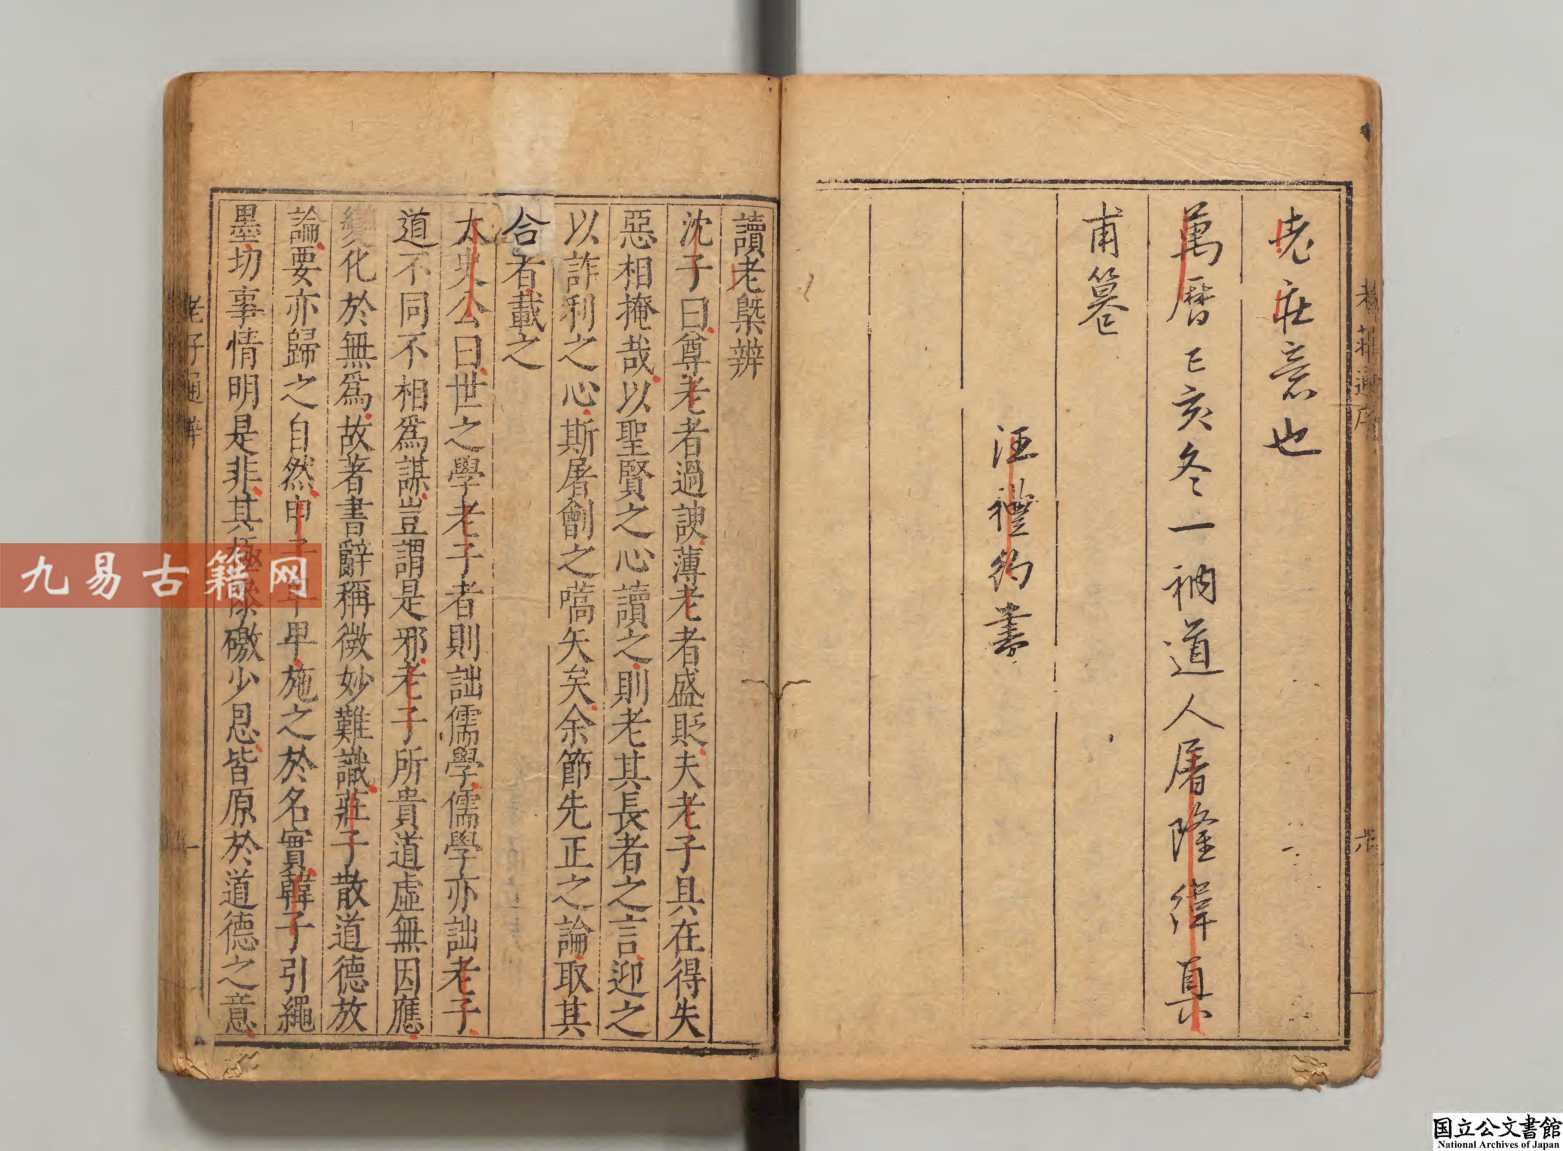 老庄意也
萬曆己亥冬一衲道人屠隆緯真
甫篹
汪禮約書
讀老槩辨
沈子曰尊老者過諛薄老者盛貶夫老子具在得失
惡相掩哉以聖賢之心讀之則老其長者之言迎之
以詐利之心斯屠劊之嚆矢矣余節先正之論取其
合者載之
太史公曰世之學老子者則詘儒學儒學亦詘老子
道不同不相爲謀豈謂是邪老子所貴道虛無因應
變化於無爲故著書辭稱微妙難識莊子散道德放
論要亦歸之自然申子卑卑施之於名實韓子引繩
墨切事情明是非其極慘礉少恩皆原於道德之意
老子通辨
九易古籍网
国立公文書館
National Archives of Japan